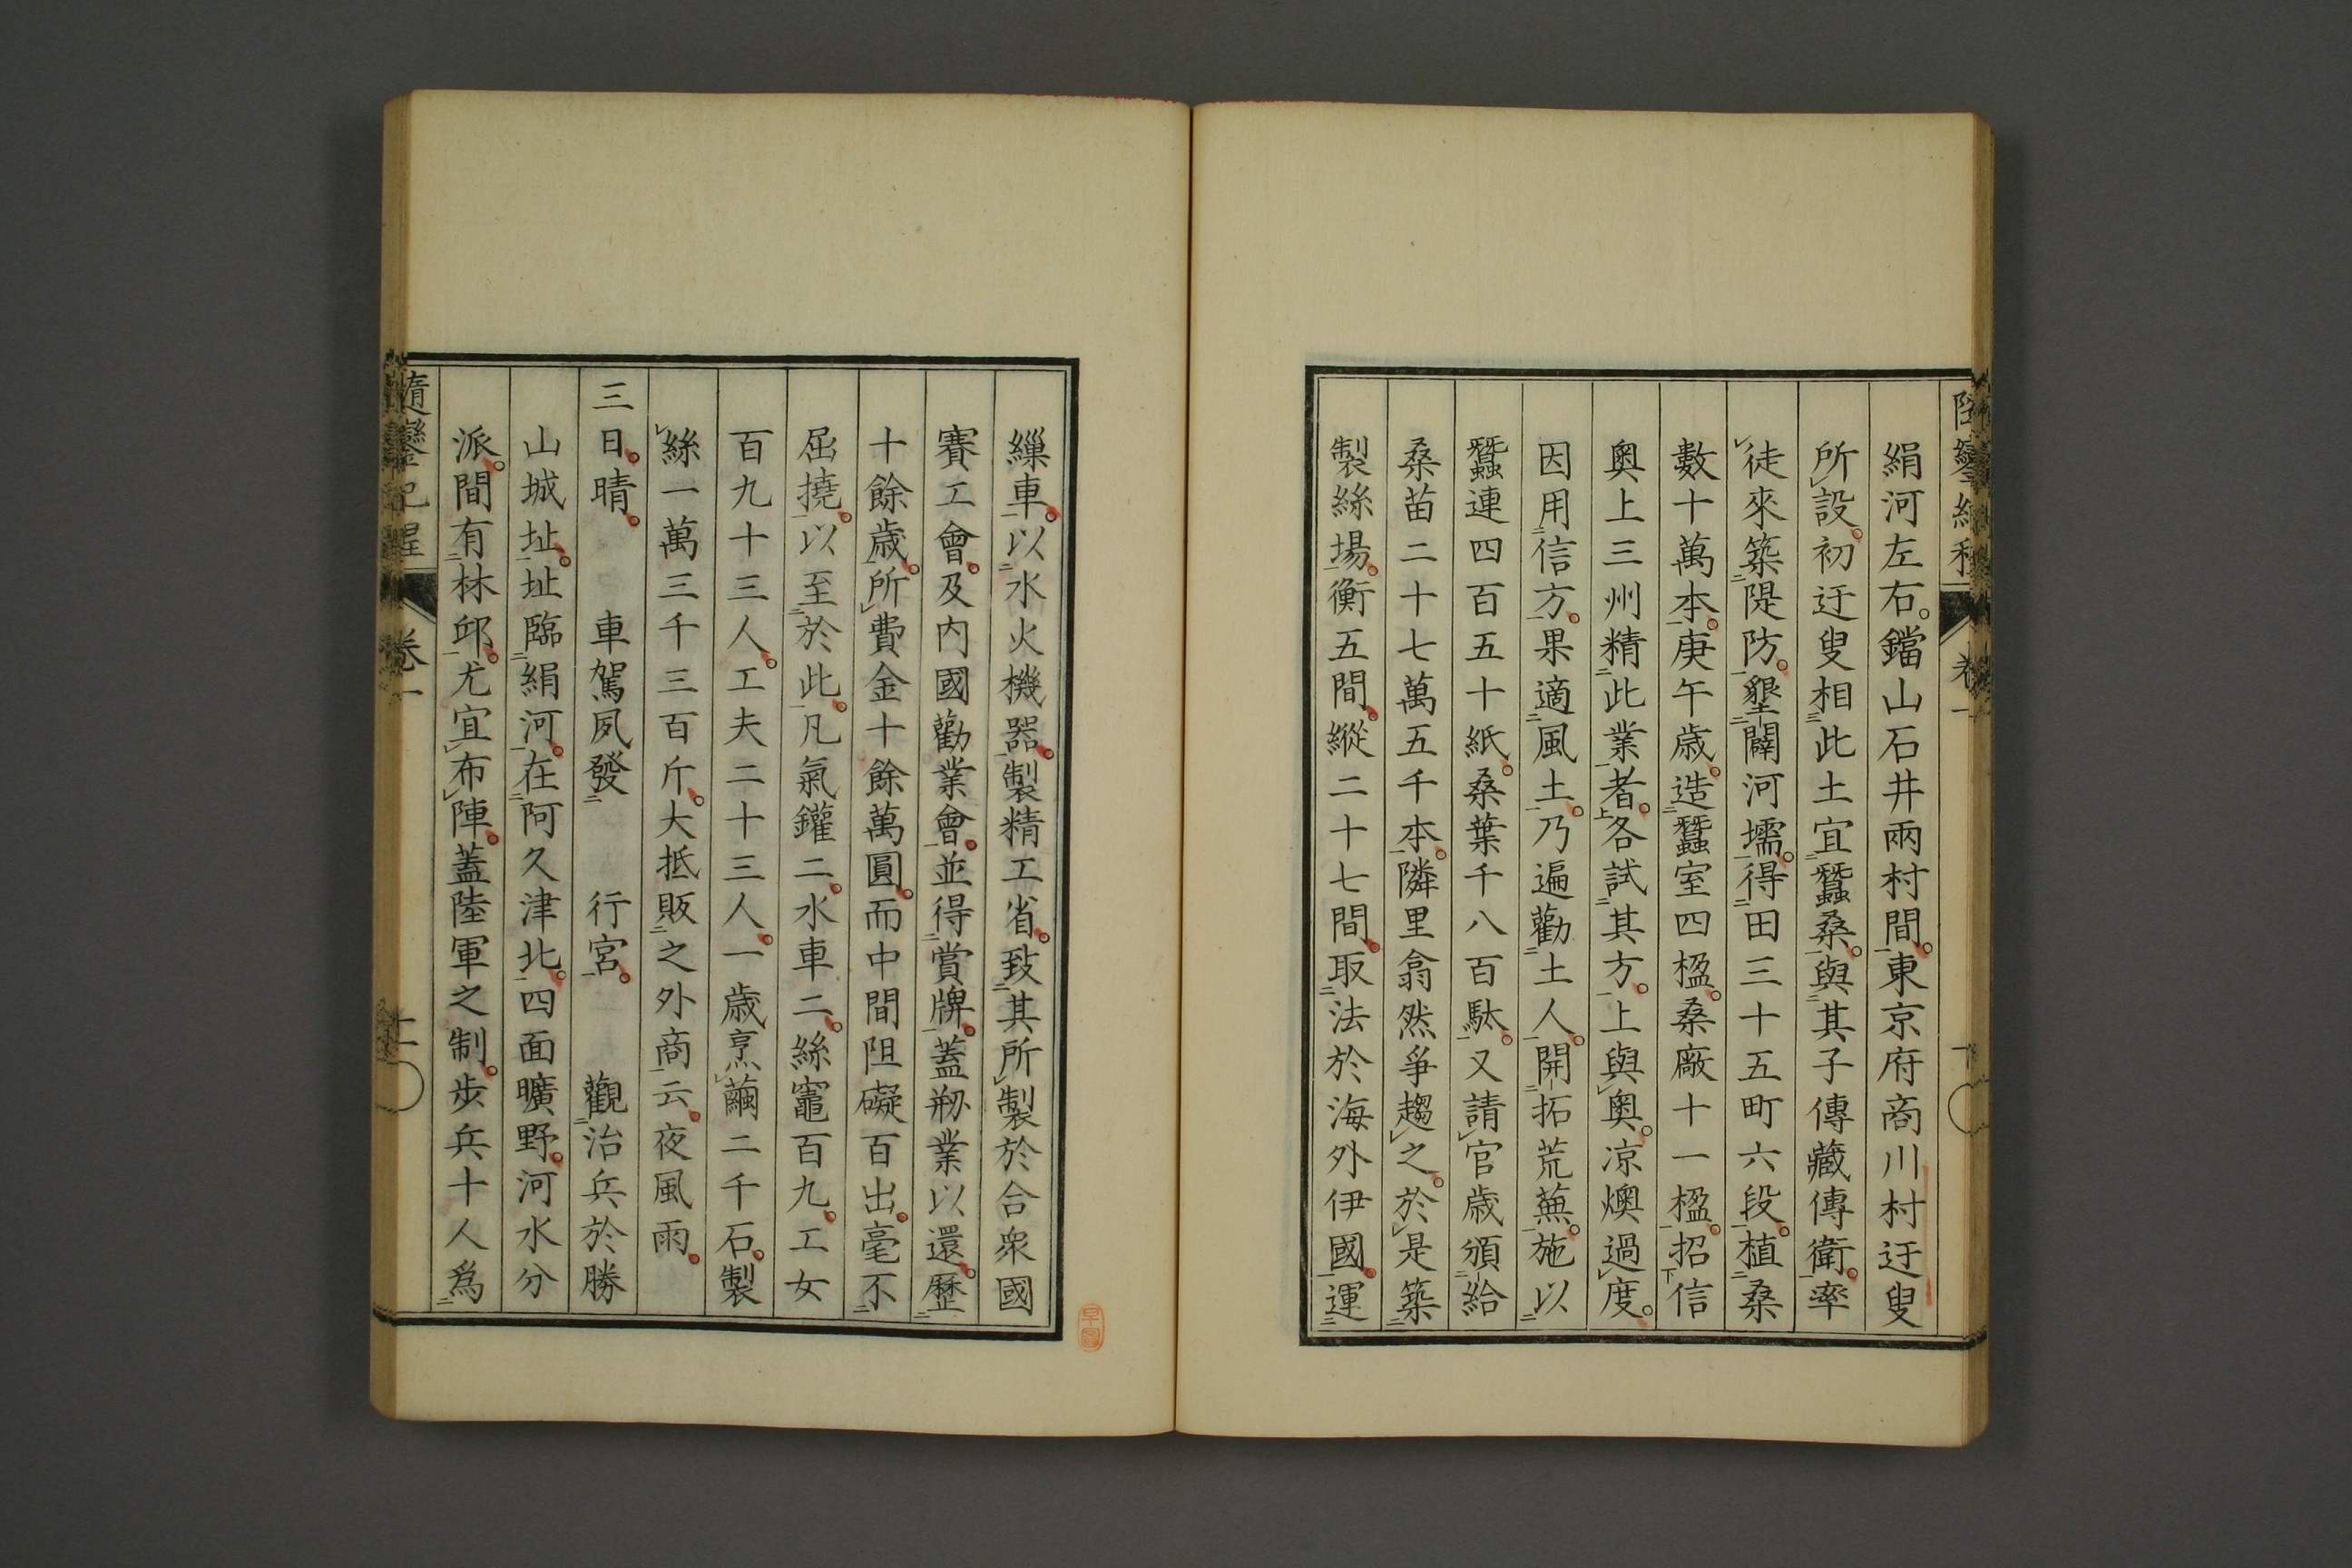 絹河左右。鐺山石井兩村間。東京府商川村迂叟
所設。初迂叟相此土宜蠶桑。與其子傳藏傳衛。率
徒來築隄防。墾闢河壖。得田三十五町六段。植桑
數十萬本。庚午歳。造蠶室四楹。桑廠十一楹。招信
奥上三州精此業者。各試其方。上與奥。凉燠過度。
因用信方。果適風土。乃遍勸土人。開拓荒蕪。施以
蠶連四百五十紙。桑葉千八百駄。又請官歳頒給
桑苗二十七萬五千本。隣里翕然爭趨之。於是築
製絲場。衡五間。縱二十七間。取法於海外伊國。運
繅車。以水火機器。製精工省。致其所製於合衆國
賽工會。及内國勸業會。並得賞牌。蓋剏業以還。歷
十餘歳。所費金十餘萬圓。而中間阻礙百出。毫不
屈撓。以至於此。凡氣鑵二。水車二。絲竈百九。工女
百九十三人。工夫二十三人。一歳烹繭二千石。製
絲一萬三千三百斤。大抵販之外商云。夜風雨。
三日。晴。車駕夙發行宮。觀治兵於勝
山城址。址臨絹河。在阿久津北。四面曠野。河水分
派。間有林邱。尤宜布陣。蓋陸軍之制。步兵十人爲
隨鑾紀程 卷一